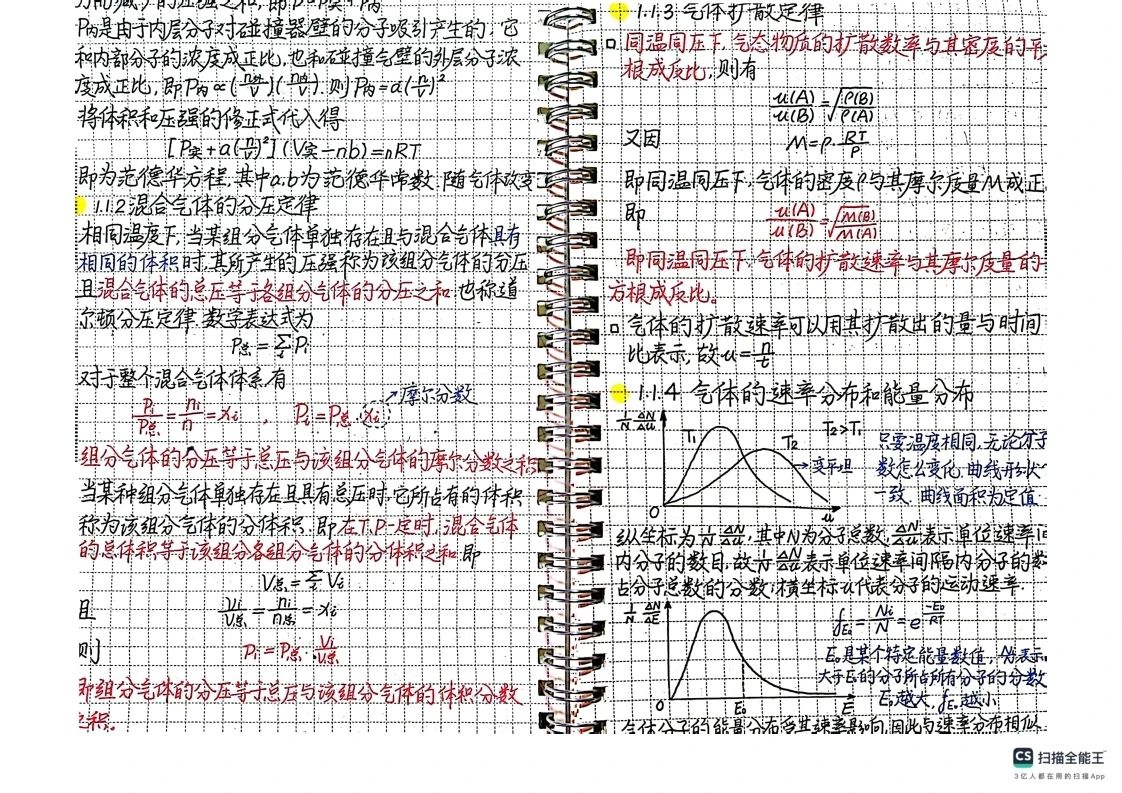 P内是由于内层分子对碰撞器壁的分子吸引产生的,它
和内部分子的浓度成正比,也和碰撞气壁的外层分子浓
度成正比,即P内∝(n内/V)(n外/V).则P内=a(n/V)²
将体积和压强的修正式代入得
[P实+a(n/V)²](V实-nb)=nRT
即为范德华方程,其中a.b为范德华常数,随气体改变
1.1.2 混合气体的分压定律
相同温度下,当某组分气体单独存在且与混合气体具有
相同的体积时,其所产生的压强称为该组分气体的分压
且混合气体的总压等于各组分气体的分压之和 也称道
尔顿分压定律 数学表达式为
P总=∑Pi
对于整个混合气体体系有
→摩尔分数
Pi/P总=ni/n=xi , Pi=P总·xi
组分气体的分压等于总压与该组分气体的摩尔分数之积
当某种组分气体单独存在且具有总压时,它所占有的体积
称为该组分气体的分体积.即在T.P一定时,混合气体
的总体积等于该组分各组分气体的分体积之和 即
V总=∑Vi
且 Vi/V总=ni/n总=xi
则 Pi=P总·Vi/V总
即组分气体的分压等于总压与该组分气体的体积分数
之积。
1.1.3 气体扩散定律
同温同压下,气态物质的扩散数率与其密度的平
根成反比,则有
u(A)/u(B)=√ρ(B)/ρ(A)
又因 M=ρ·RT/P
即同温同压下,气体的密度ρ与其摩尔质量M成正
即 u(A)/u(B)=√M(B)/M(A)
即同温同压下,气体的扩散速率与其摩尔质量的
方根成反比。
气体的扩散速率可以用其扩散出的量与时间
比表示,故u=n/t
1.1.4 气体的速率分布和能量分布
1/N ΔN/Δu T₁ T₂ T₂>T₁
→变平坦
O u
只要温度相同,无论分子
数怎么变化,曲线形状
一致,曲线面积为定值
纵坐标为1/N ΔN/Δu,其中N为分子总数,ΔN/Δu表示单位速率间
内分子的数目,故1/N ΔN/Δu表示单位速率间隔内分子的数
占分子总数的分数;横坐标u代表分子的运动速率.
1/N ΔN/ΔE
O E₀ E
fE₀=Ni/N=e^(-E₀/RT)
E₀是某个特定能量数值,Ni/N表示
大于E₀的分子所占所有分子的分数
E₀越大,fE₀越小
气体分子的能量分布受其速率影响,因此与速率分布相似
CS 扫描全能王
3亿人都在用的扫描App